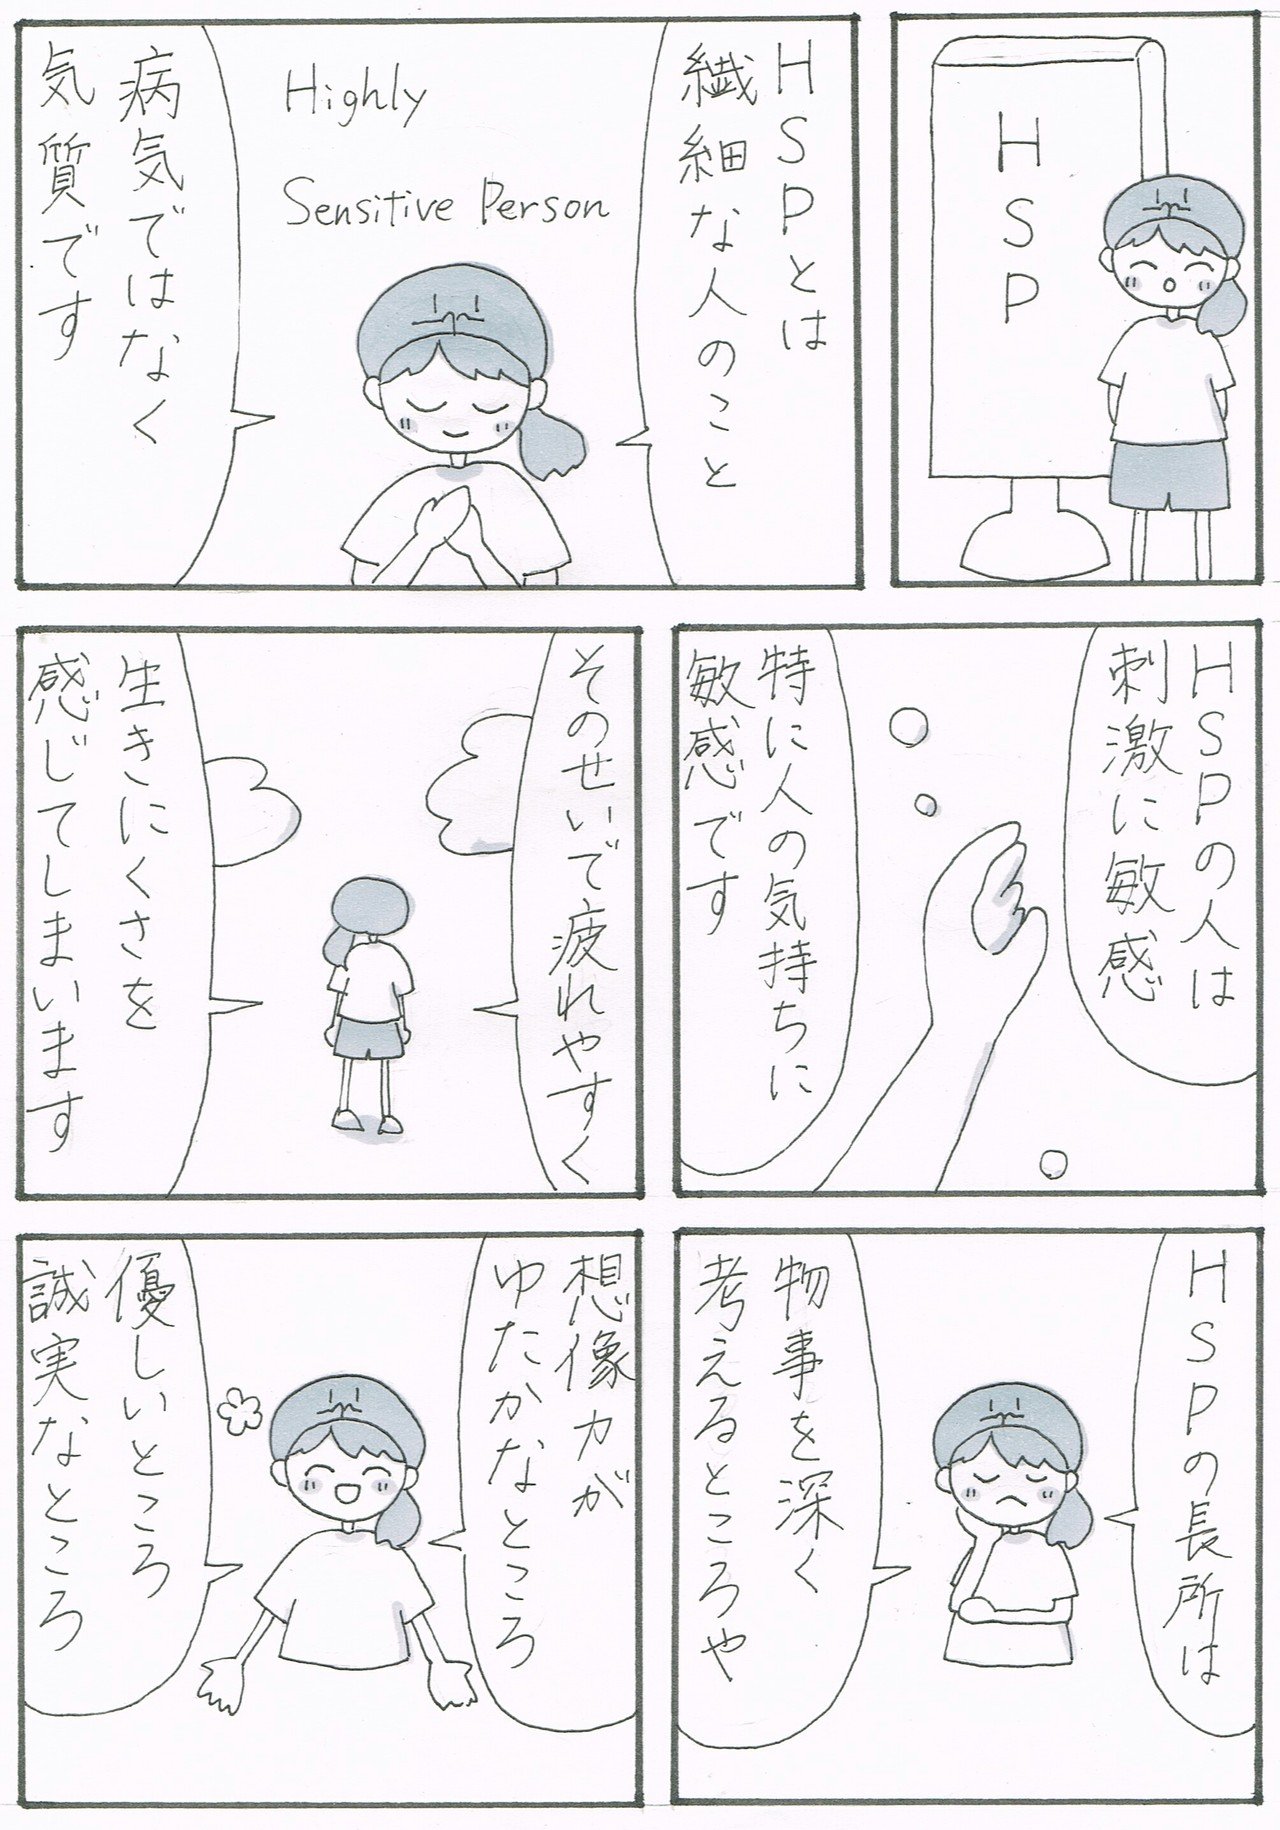 HSP
HSPとは
繊細な人のこと
Highly
Sensitive Person
病気ではなく
気質です
HSPの人は
刺激に敏感
特に人の気持ちに
敏感です
そのせいで疲れやすく
生きにくさを
感じてしまいます
HSPの長所は
物事を深く
考えるところや
想像力が
ゆたかなところ
優しいところ
誠実なところ